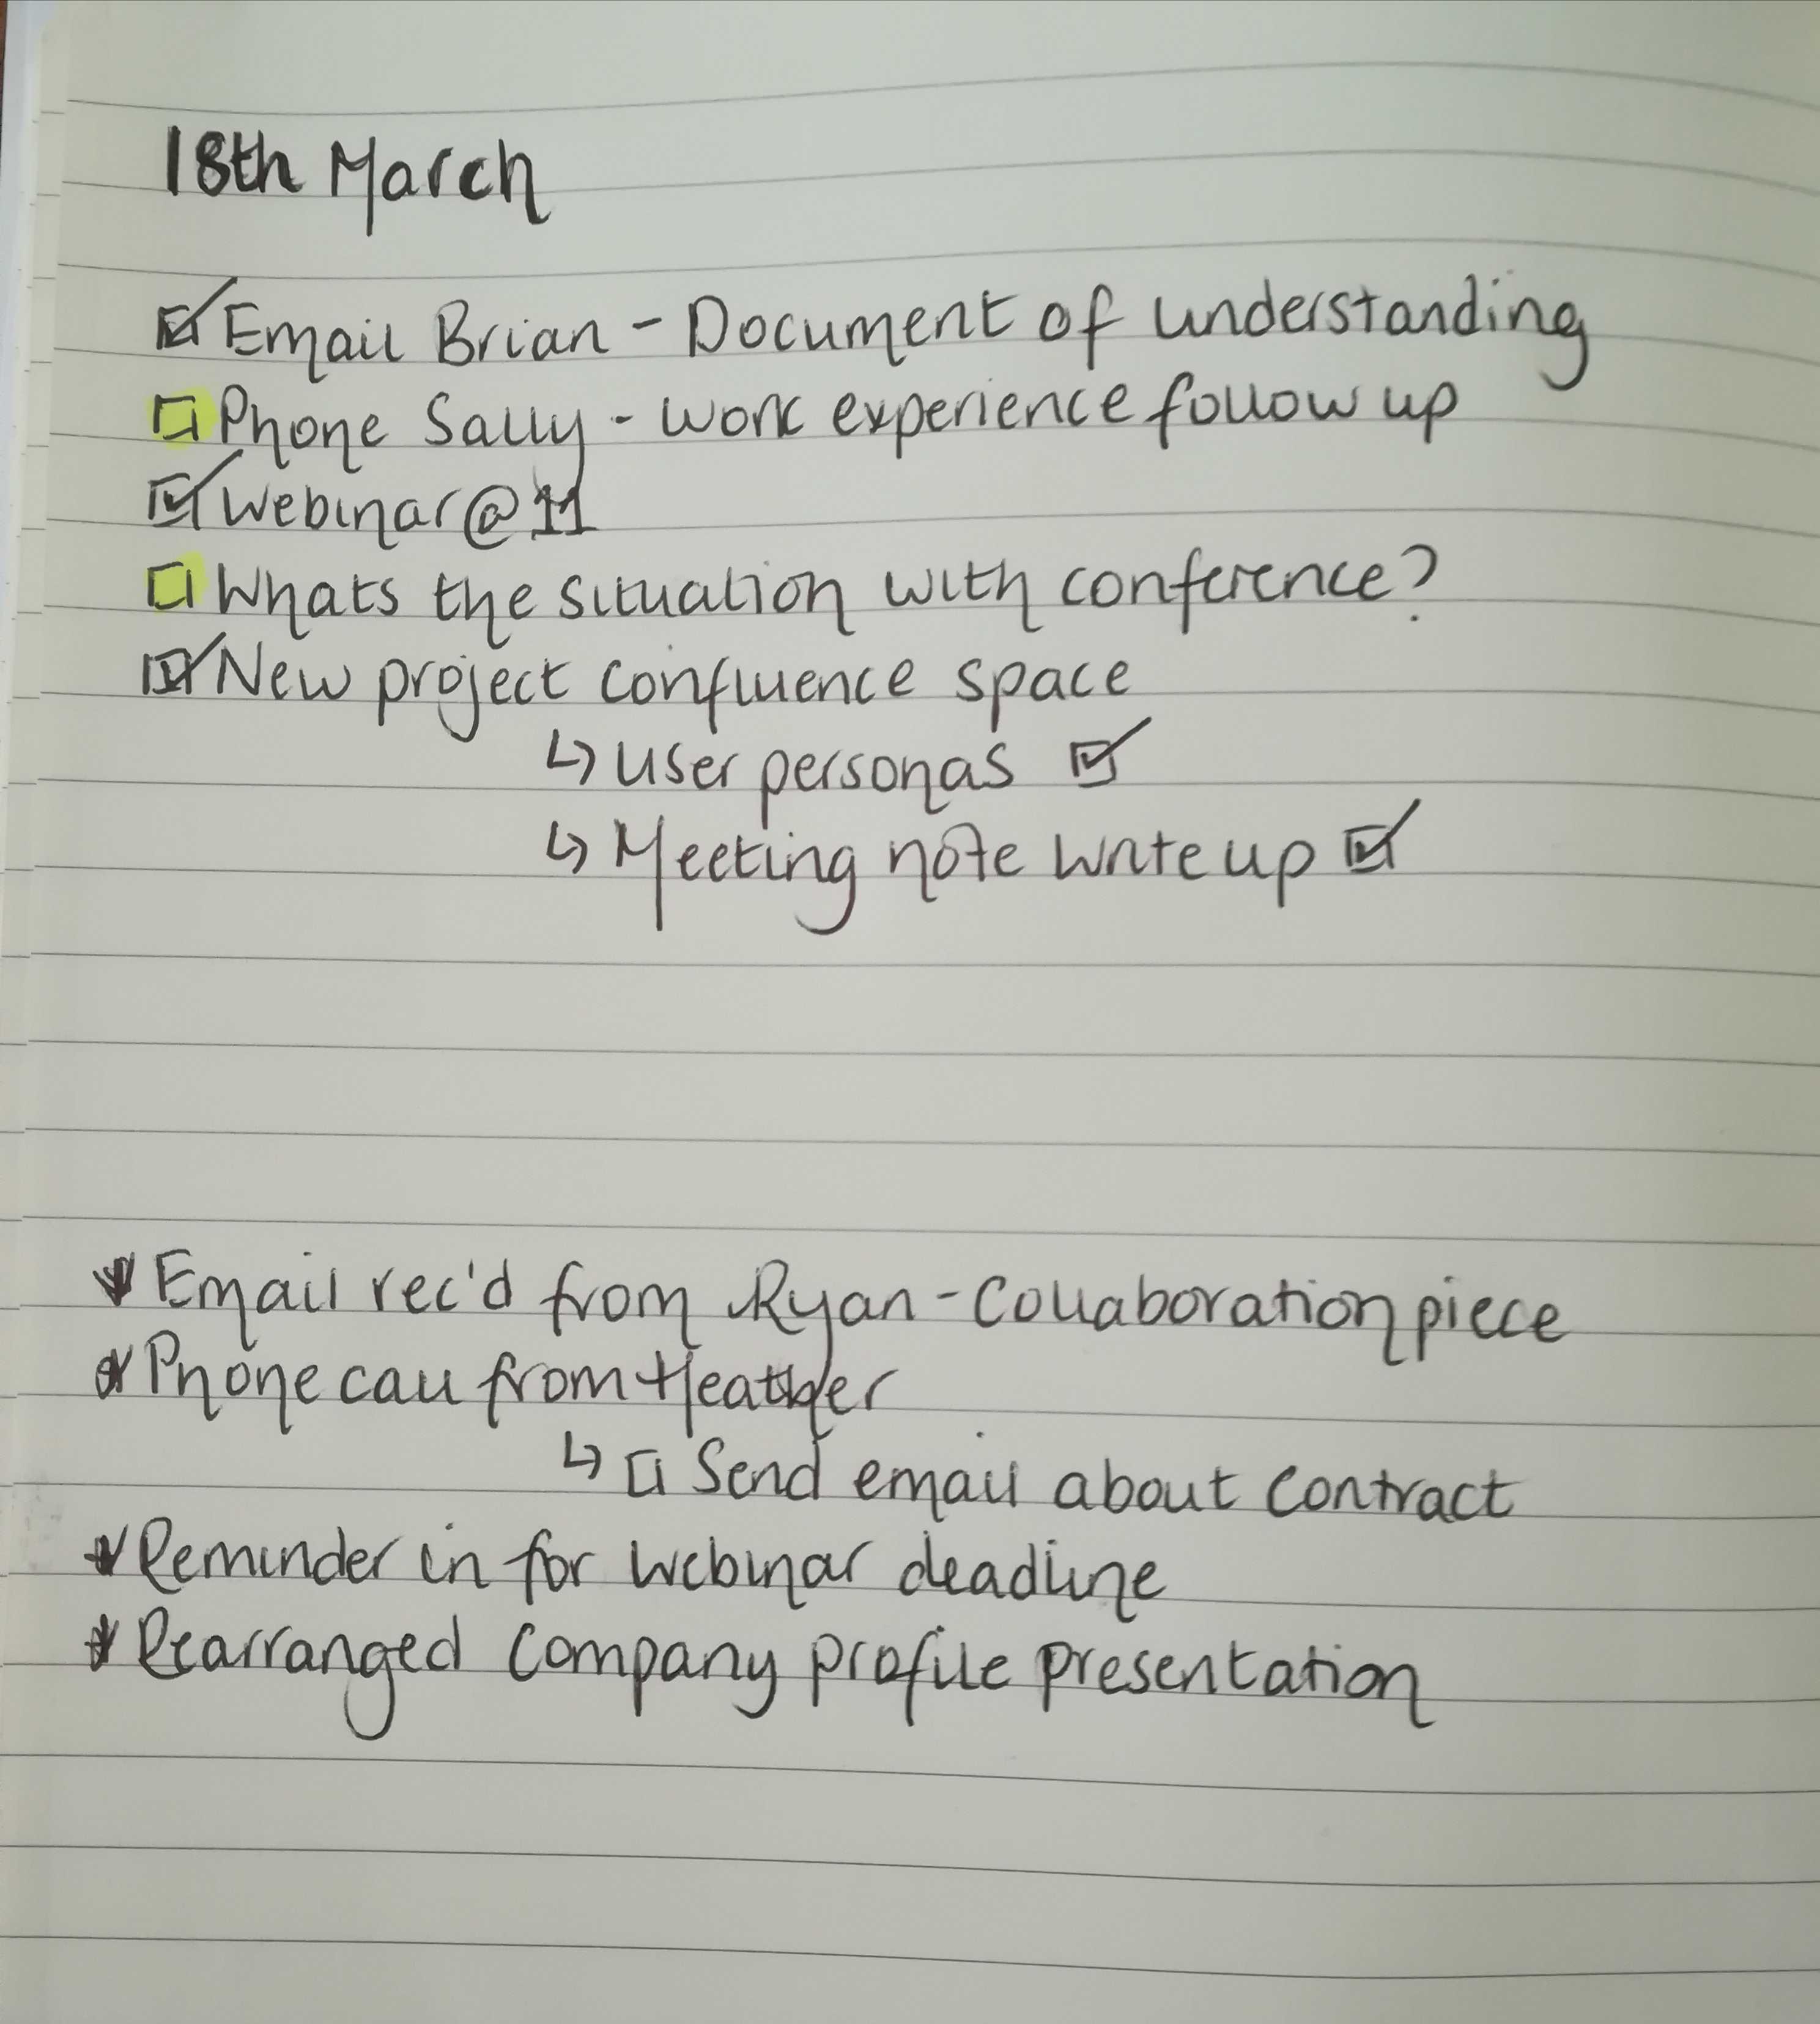 18th March
☑ Email Brian - Document of understanding
☐ Phone Sally - work experience follow up
☑ Webinar @ 11
☐ Whats the situation with conference?
☑ New project confluence space
↳ User personas ☑
↳ Meeting note write up ☑
* Email rec'd from Ryan - Collaboration piece
* Phone call from Heather
↳ ☐ Send email about contract
* Reminder in for webinar deadline
* Rearranged company profile presentation